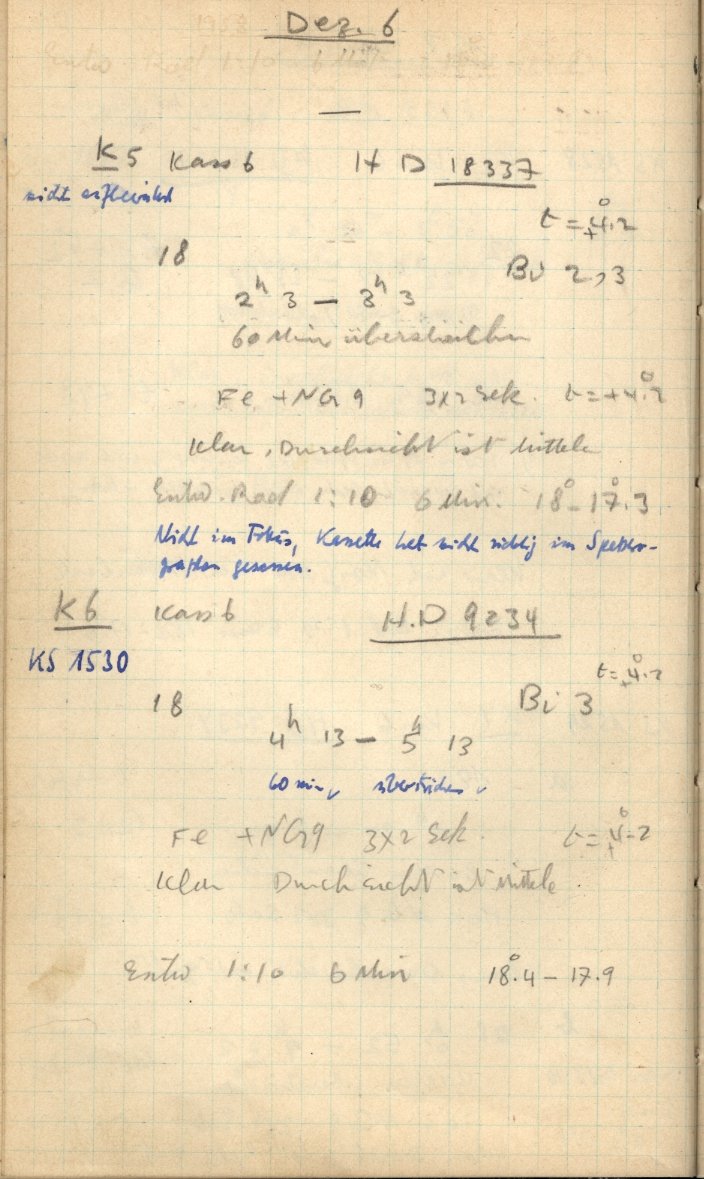 Dez. 6
K5 Kass 6 HD 18337
nicht aufbewahrt
t = +4°.2
18 Bi 2,3
2h 3 – 3h 3
60 Min überstrichen
Fe + NG 9 3x2 Sek. t = +4°.2
Klar, Durchsicht ist Mittel
Entw. Rod 1:10 6 Min. 18° – 17°.3
Nicht im Fokus, Kassette hat nicht richtig im Spektro-
graphen gesessen.
K6 Kass 6 H.D 9234
KS 1530
t = +4°.2
18 Bi 3
4h 13 – 5h 13
60 min, überstrichen
Fe + NG9 3x2 Sek. t = +4°.2
Klar Durchsicht ist Mittel
Entw 1:10 6 Min 18°.4 – 17.9